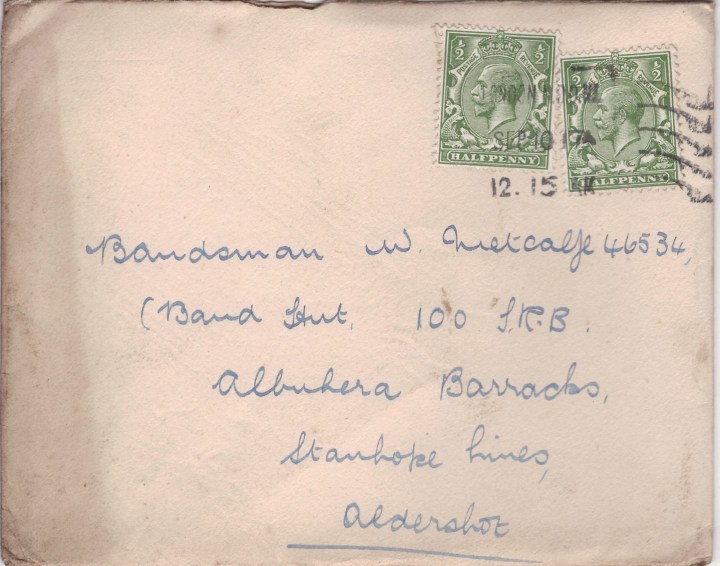 ½ ½
POSTAGE REVENUE
HALFPENNY
½ ½
HALFPENNY
SEP 10 17
12. 15
Bandsman W. Metcalfe 46534,
(Band Hut, 100 T.R.B.
Albuhera Barracks,
Stanhope Lines,
Aldershot